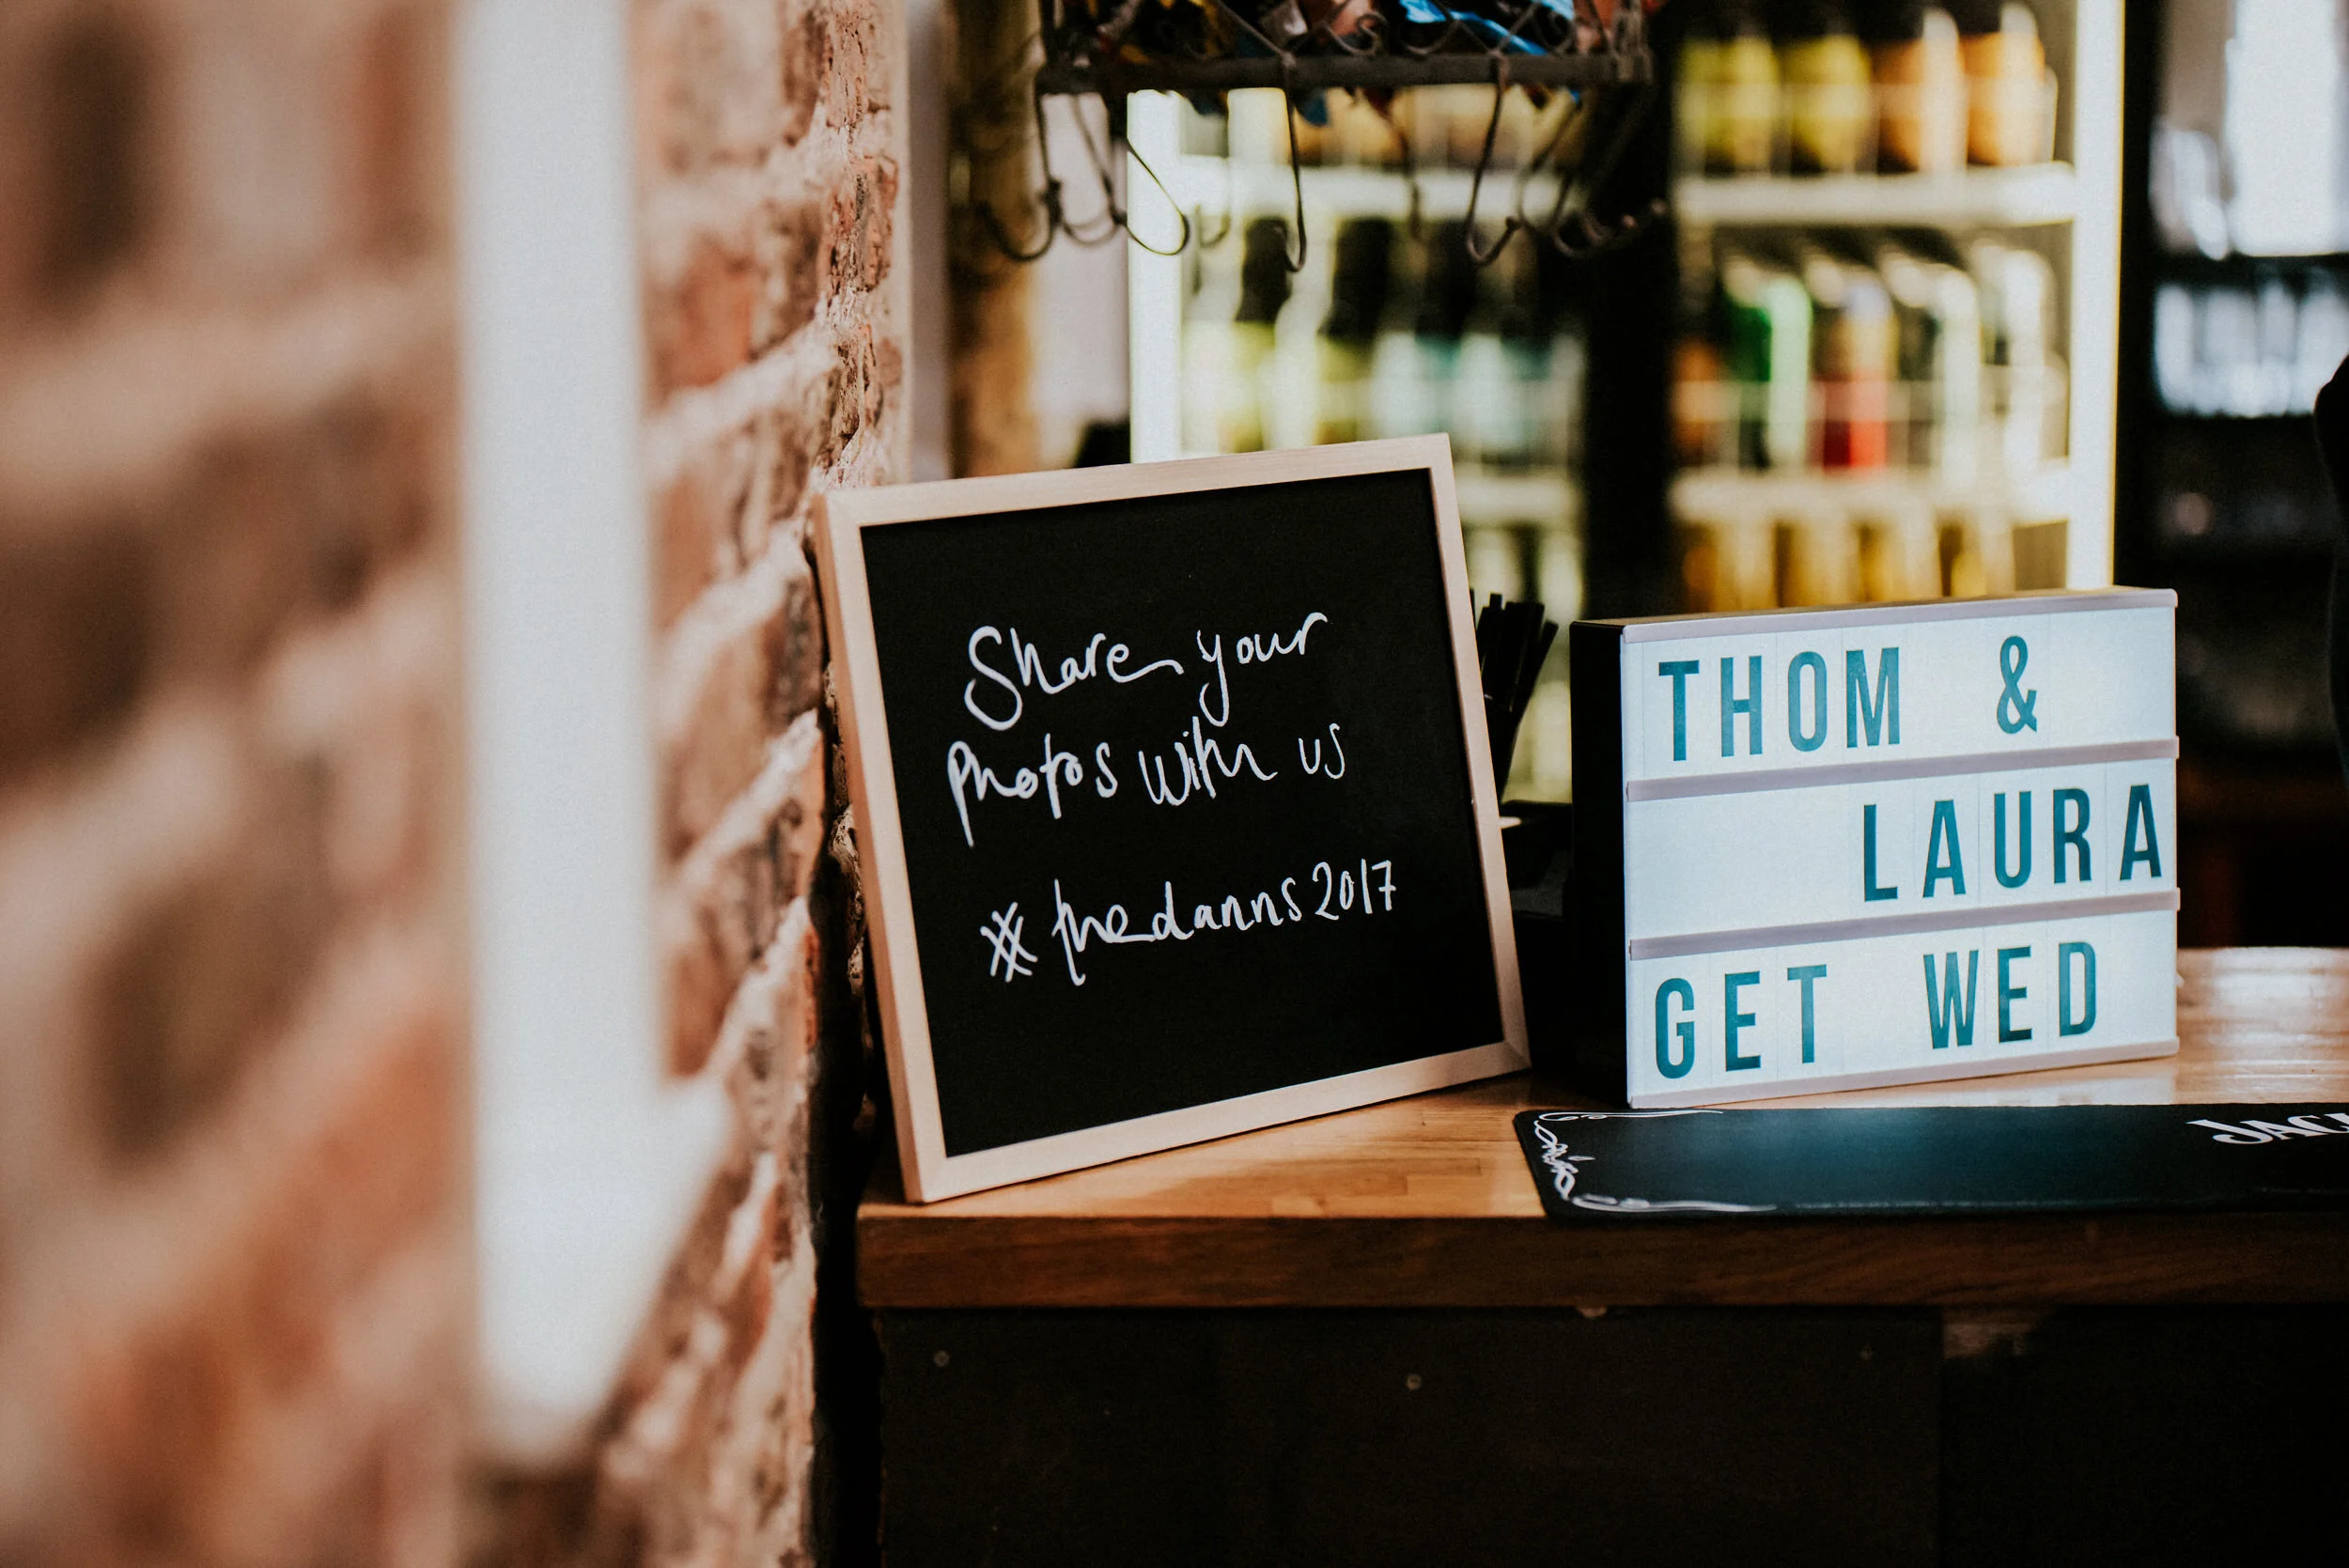 Share your
Photos with us
# thedanns2017
THOM &
LAURA
GET WED